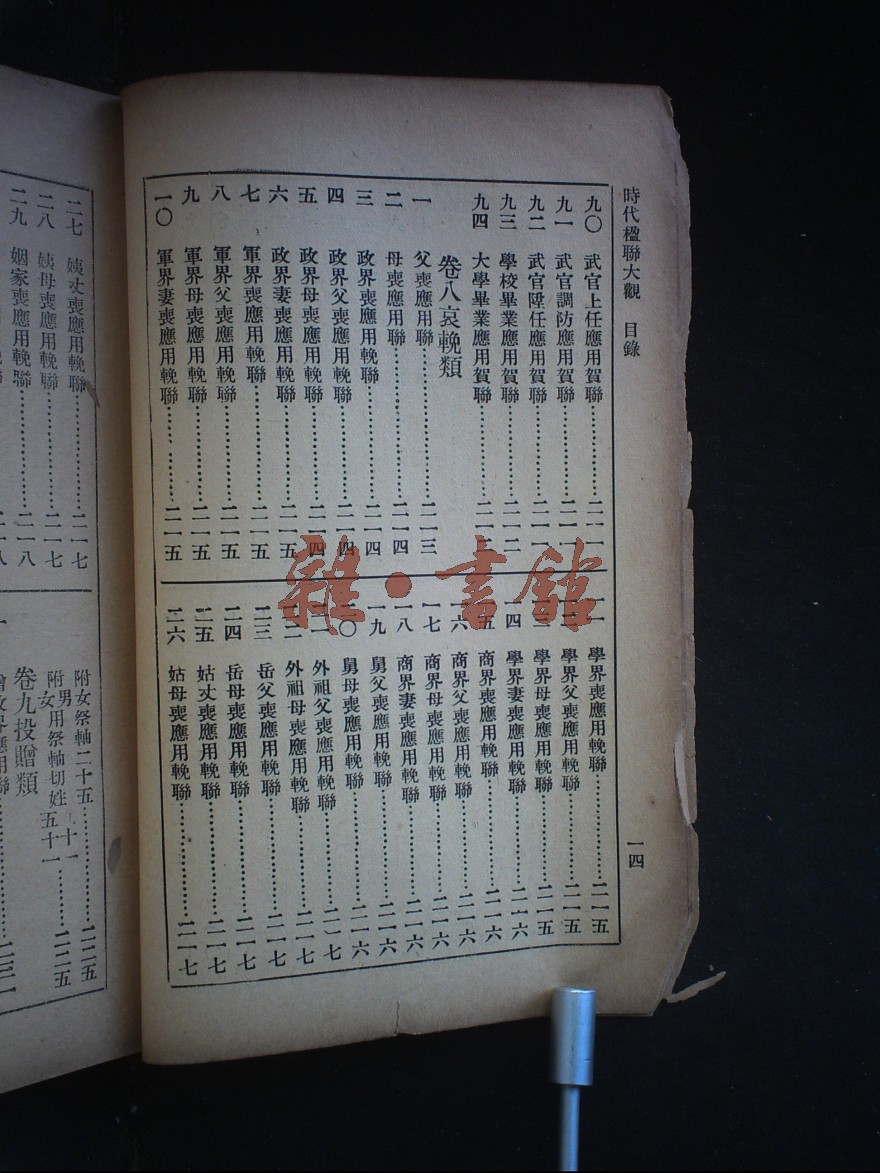 時代楹聯大觀 目錄
一四
九〇 武官上任應用賀聯……二一一
九一 武官調防應用賀聯……二一一
九二 武官陞任應用賀聯……二一一
九三 學校畢業應用賀聯……二一二
九四 大學畢業應用賀聯……二一三
卷八哀輓類
一 父喪應用聯……二一三
二 母喪應用聯……二一四
三 政界喪應用輓聯……二一四
四 政界父喪應用輓聯……二一四
五 政界母喪應用輓聯……二一四
六 政界妻喪應用輓聯……二一五
七 軍界喪應用輓聯……二一五
八 軍界父喪應用輓聯……二一五
九 軍界母喪應用輓聯……二一五
一〇 軍界妻喪應用輓聯……二一五
一一 學界喪應用輓聯……二一五
一二 學界父喪應用輓聯……二一五
一三 學界母喪應用輓聯……二一五
一四 學界妻喪應用輓聯……二一六
一五 商界喪應用輓聯……二一六
一六 商界父喪應用輓聯……二一六
一七 商界母喪應用輓聯……二一六
一八 商界妻喪應用輓聯……二一六
一九 舅父喪應用輓聯……二一六
二〇 舅母喪應用輓聯……二一六
二一 外祖父喪應用輓聯……二一七
二二 外祖母喪應用輓聯……二一七
二三 岳父喪應用輓聯……二一七
二四 岳母喪應用輓聯……二一七
二五 姑丈喪應用輓聯……二一七
二六 姑母喪應用輓聯……二一七
二七 姨丈喪應用輓聯……二一七
二八 姨母喪應用輓聯……二一七
二九 姻家喪應用輓聯……二一八
附女祭軸二十五……二二五
附男女用祭軸切姓五十一……二二五
卷九投贈類
一
雜·書館